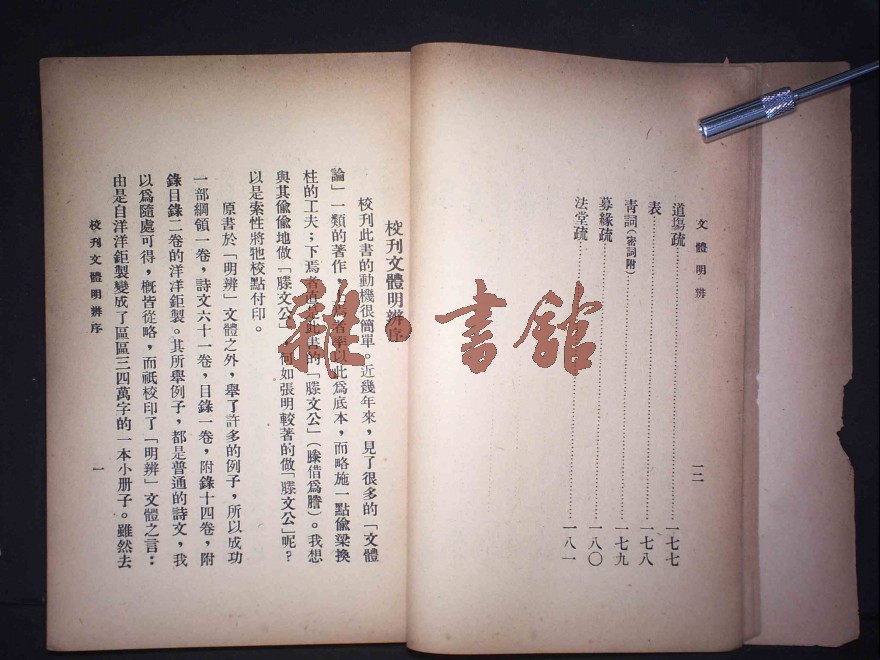 文體明辨
一二
道場疏……一七七
表……一七八
靑詞(密詞附)……一七九
募緣疏……一八〇
法堂疏……一八一
校刊文體明辨序
校刊此書的動機很簡單。近幾年來，見了很多的「文體
論」一類的著作，焉者率以此爲底本，而略施一點偸梁換
柱的工夫；下焉者直是此書的「滕文公」（滕借爲謄）。我想
與其偸偸地做「滕文公」，何如張明較著的做「滕文公」呢？
以是索性將牠校點付印。
原書於「明辨」文體之外，舉了許多的例子，所以成功
一部綱領一卷，詩文六十一卷，目錄一卷，附錄十四卷，附
錄目錄二卷的洋洋鉅製。其所舉例子，都是普通的詩文，我
以爲隨處可得，槪皆從略，而祇校印了「明辨」文體之言：
由是自洋洋鉅製變成了區區三四萬字的一本小册子。雖然去
校刊文體明辨序
一
雜·書館